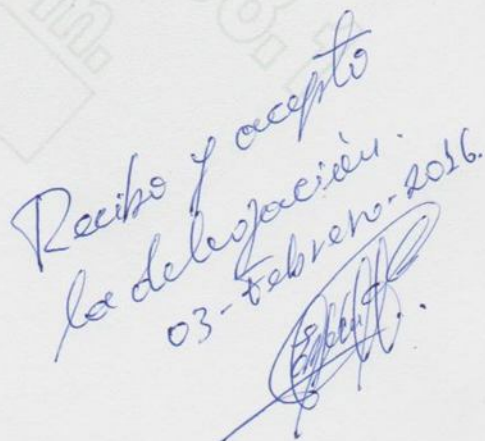 Recibo y acepto
la delegación.
03-Febrero-2016.